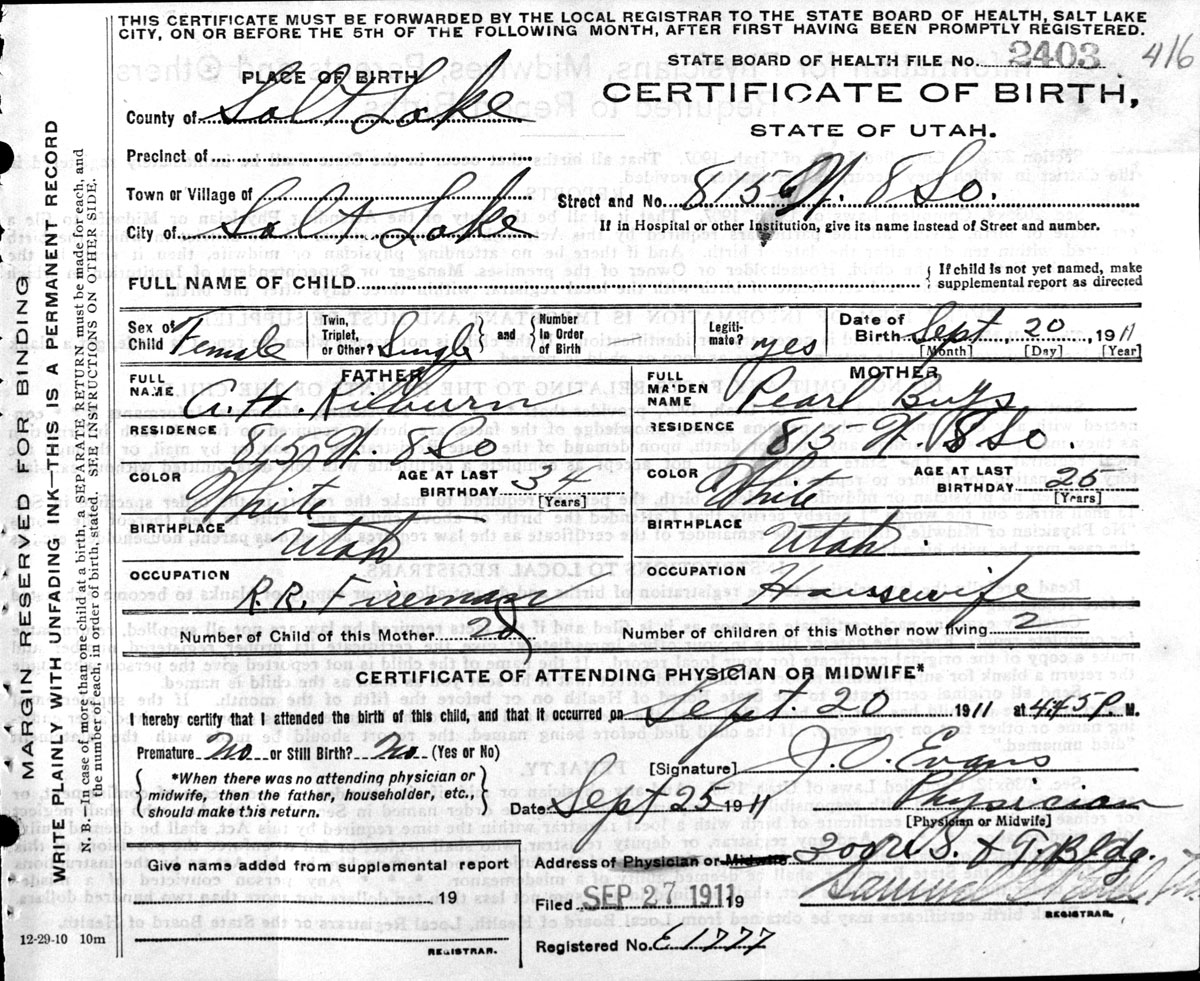 THIS CERTIFICATE MUST BE FORWARDED BY THE LOCAL REGISTRAR TO THE STATE BOARD OF HEALTH, SALT LAKE
CITY, ON OR BEFORE THE 5TH OF THE FOLLOWING MONTH, AFTER FIRST HAVING BEEN PROMPTLY REGISTERED.
STATE BOARD OF HEALTH FILE No. 2403 416
PLACE OF BIRTH
CERTIFICATE OF BIRTH,
County of Salt Lake
STATE OF UTAH.
Precinct of
Town or Village of
Street and No. 813 W. 8 So.
City of Salt Lake
If in Hospital or other Institution, give its name instead of Street and number.
FULL NAME OF CHILD
If child is not yet named, make
supplemental report as directed
Sex of Child Female
Twin, Triplet, or Other? Single
and Number in Order of Birth
Legiti-mate? yes
Date of Birth Sept. 20, 1911
[Month] [Day] [Year]
FATHER
FULL NAME
Kilburn
RESIDENCE
813 W. 8 So
COLOR White
AGE AT LAST BIRTHDAY 34
[Years]
BIRTHPLACE
Utah
OCCUPATION
R.R. Fireman
MOTHER
FULL MAIDEN NAME
Pearl
RESIDENCE
813 W 8 So.
COLOR White
AGE AT LAST BIRTHDAY 20
[Years]
BIRTHPLACE
Utah
OCCUPATION
Housewife
Number of Child of this Mother 2
Number of children of this Mother now living 2
CERTIFICATE OF ATTENDING PHYSICIAN OR MIDWIFE*
I hereby certify that I attended the birth of this child, and that it occurred on Sept. 20 1911 at 4:45 P. M.
Premature No or Still Birth? No (Yes or No)
*When there was no attending physician or
midwife, then the father, householder, etc.,
should make this return.
[Signature] J. O. Evans
Date Sept 25 1911
Physician
[Physician or Midwife]
Give name added from supplemental report
19
REGISTRAR.
Address of Physician or Midwife S. & T. Bldg.
Filed SEP 27 1911 19
REGISTRAR.
Registered No. E 1777
12-29-10 10m
MARGIN RESERVED FOR BINDING
WRITE PLAINLY WITH UNFADING INK—THIS IS A PERMANENT RECORD
N. B.—In case of more than one child at a birth, a SEPARATE RETURN must be made for each, and
the number of each, in order of birth, stated. SEE INSTRUCTIONS ON OTHER SIDE.